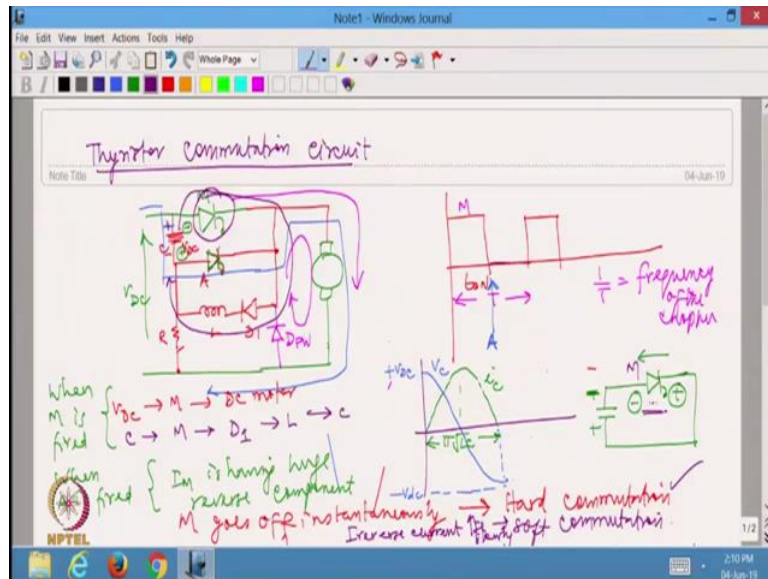 Note1 - Windows Journal
File Edit View Insert Actions Tools Help
Whole Page
B I
Thyristor commutation circuit
Note Title
04-Jun-19
M
+
C
VDC
A
VDC
L
D1
R
DFW
ton
T
A
1/T = frequency of the chopper
When M is fired
VDC → M → DC motor
C → M → D1 → L → C
+VDC
VC
iC
π√LC
-Vdc
M
-
+
When
fired
IM is having huge reverse component
M goes off instantaneously → Hard commutation
Soft commutation
NPTEL
1/2
2:10 PM
04-Jun-19